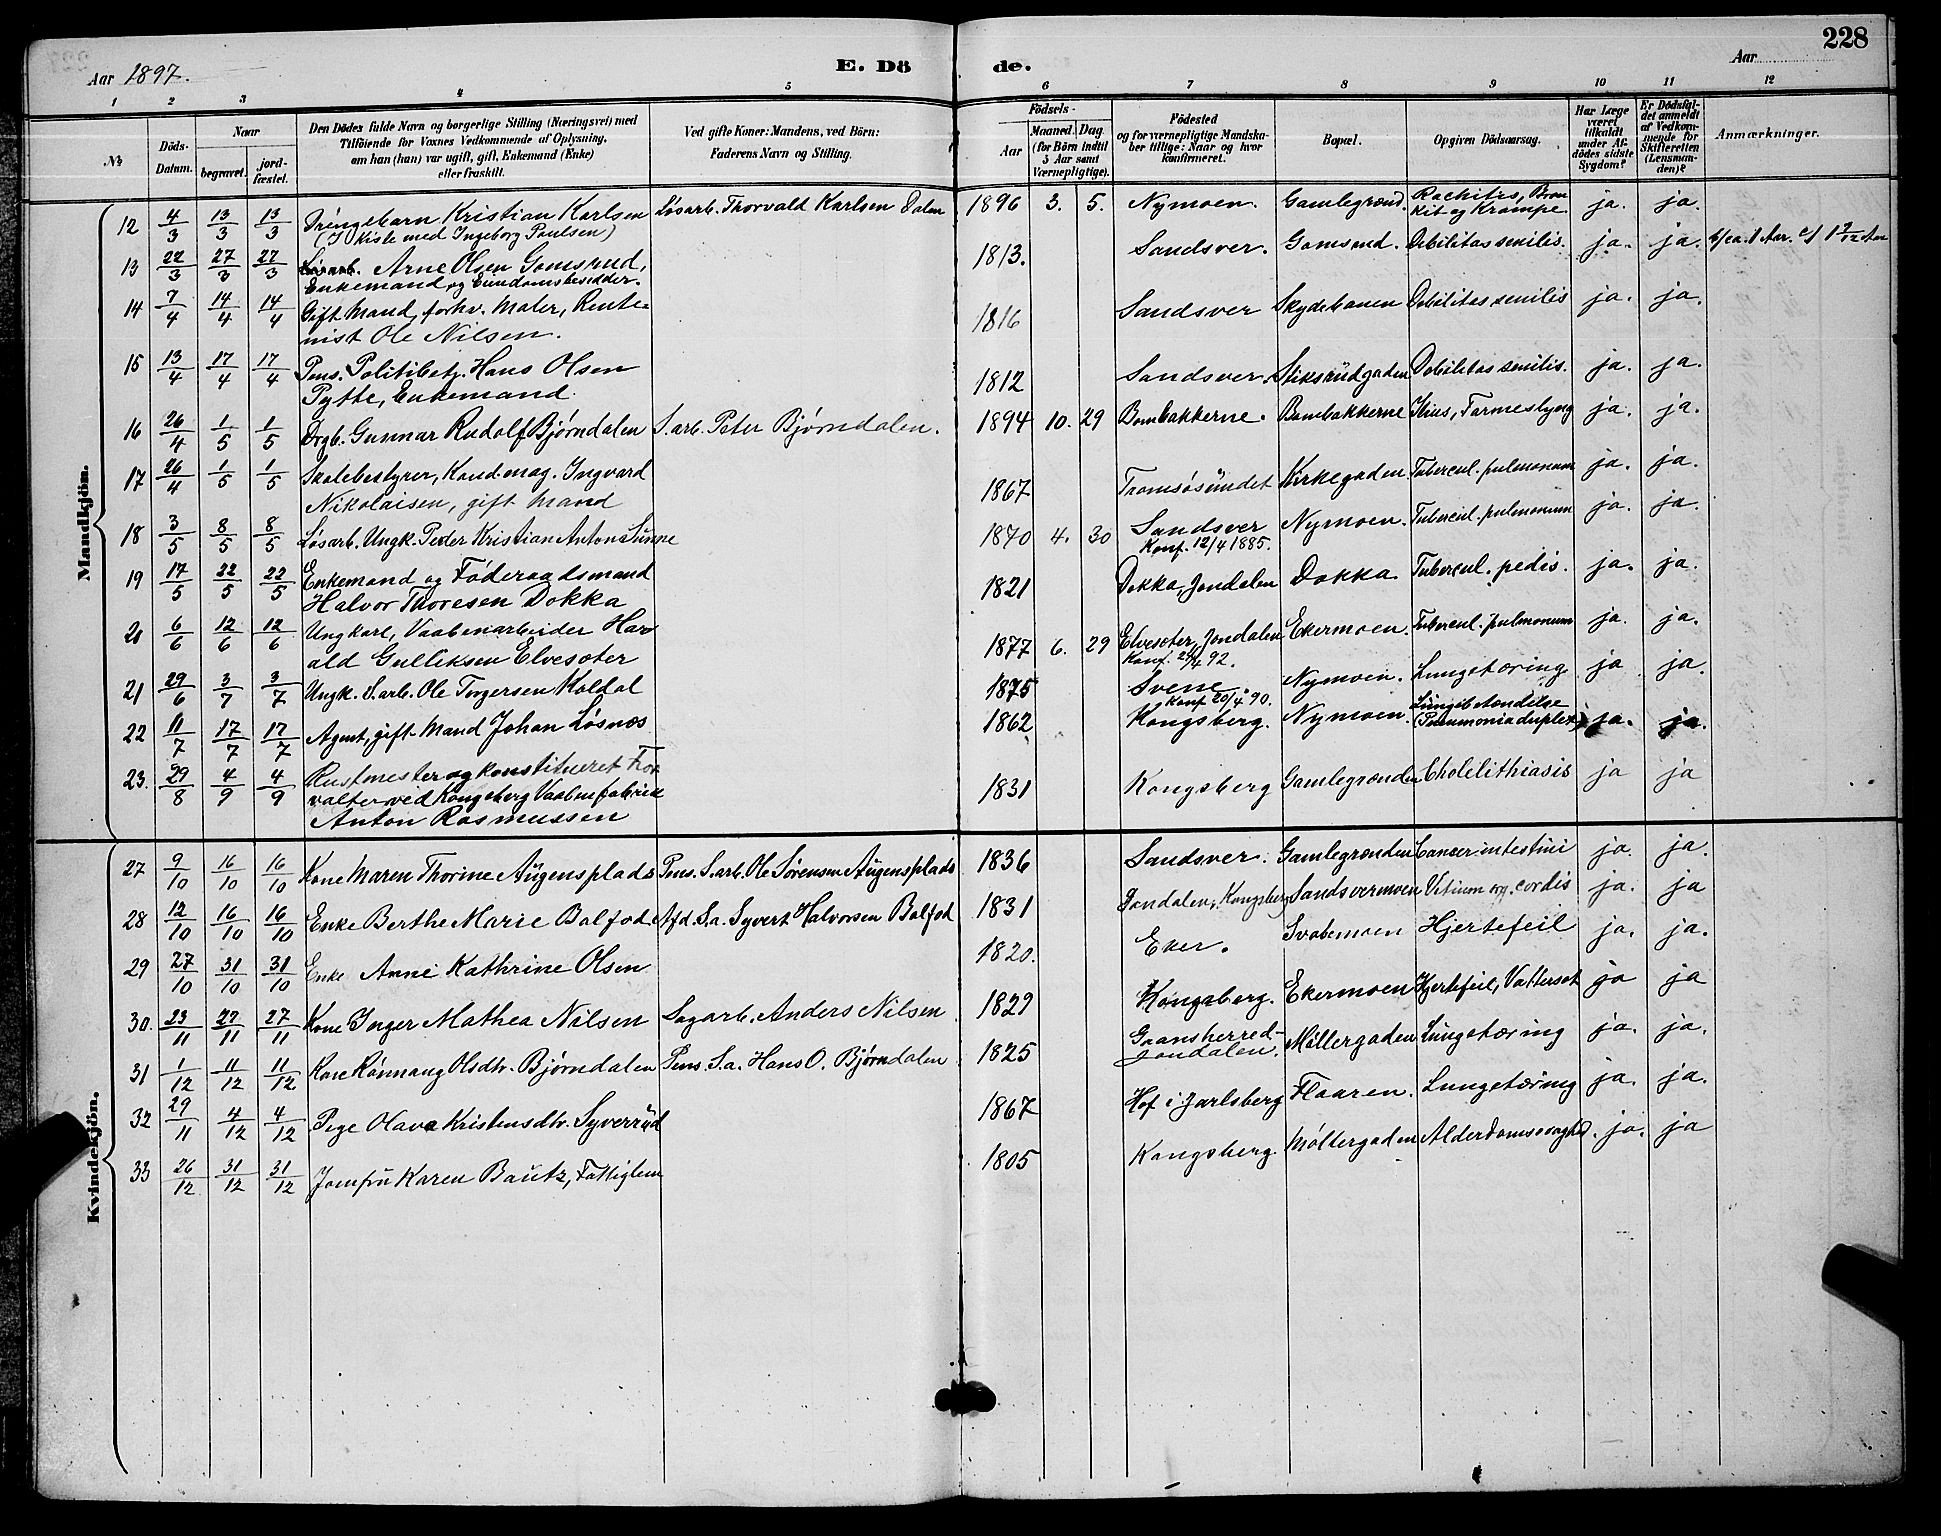 228
Aar 1897.
E. Dö
de.
Aar
1 2 3 4 5 6 7 8 9 10 11 12
№
Döds-Datum.
Naar
begravet.
jord-fæstet.
Den Dödes fulde Navn og borgerlige Stilling (Næringsvei) med
Tilföiende for Voxnes Vedkommende af Oplysning,
om han (hun) var ugift, gift, Enkemand (Enke)
eller fraskilt.
Ved gifte Koner: Mandens, ved Börn:
Faderens Navn og Stilling.
Födsels-
Aar
Maaned. Dag.
(for Börn indtil
5 Aar samt
Værnepligtige).
Födested
og for værnepligtige Mandska-
ber tillige: Naar og hvor
konfirmeret.
Bopæl.
Opgiven Dödsaarsag.
Har Læge
været
tilkaldt
under Af-
dödes sidste
Sygdom?
Er Dödsfal-
det anmeldt
af Vedkom-
mende for
Skifteretten
(Lensman-
den)?
Anmærkninger.
Mandkjön.
12 4/3 13/3 13/3 Drengebarn Kristian Karlsen Løsarb. Thorvald Karlsen Dalen 1896 3. 5. Nymoen. Gamlegrænd. Rachitis, Bron
kit og Krampe ja. ja.
(I Kiste med Ingeborg Paulsen)
13 22/3 27/3 27/3 Løsarb. Arne Olsen Gomsrud, 1813. Sandsver. Gomsrud. Debilitas senilis. ja. ja. b/ ca. 1 Aar. c/ 1 9/12 Aar
Enkemand og Eiendomsbesidder.
14 7/4 14/4 14/4 Gift Mand, forhv. Maler, Rente- 1816 Sandsver Skydebanen Debilitas senilis ja. ja.
nist Ole Nilsen.
15 13/4 17/4 17/4 Pens. Politibetj. Hans Olsen 1812 Sandsver. Stiksrudgaden Debilitas senilis. ja. ja.
Pytte, Enkemand.
16 26/4 1/5 1/5 Drgb. Gunnar Rudolf Bjørndalen S. arb. Peter Bjørndalen. 1894 10. 29 Bombakkerne. Bombakkerne Ilius, Tarmeslyng ja. ja.
17 26/4 1/5 1/5 Skolebestyrer, Kand. mag. Ingvard 1867 Tromsøsundet Kirkegaden. Tubercul. pulmonum ja. ja.
Nikolaisen, gift Mand
18 3/5 8/5 8/5 Løsarb. Ungk. Peder Kristian Anton Sunne 1870 4. 30 Sandsver Nymoen. Tubercul. pulmonum ja. ja.
Konf. 12/4 1885.
19 17/5 22/5 22/5 Enkemand og Føderaadsmand 1821 Dokka, Jondalen Dokka Tubercul. pedis. ja. ja.
Halvor Thoresen Dokka
20 6/6 12/6 12/6 Ungkarl, Vaabenarbeider Har 1877 6. 29 Elvesæter, Jondalen Ekermoen. Tubercul. pulmonum ja. ja.
ald Gulliksen Elvesæter Konf. 24/4 92.
21 29/6 3/7 3/7 Ungk. S. arb. Ole Torgersen Koldal 1875 Svene. Nymoen. Lungetæring ja ja
Konf. 20/4 90.
22 11/7 17/7 17/7 Agent, gift Mand Johan Løsnæs 1862 Kongsberg. Nymoen. Lungebetændelse
(Pneumonia duplex) ja. ja.
23. 29/8 4/9 4/9 Rustmester og konstitueret For 1831 Kongsberg Gamlegrænden Cholelithiasis ja ja
valter ved Kongsberg Vaabenfabrik
Anton Rasmussen
Kvindekjön.
27 9/10 16/10 16/10 Kone Maren Thorine Augensplads Pens. S. arb. Ole Sørensen Augensplads 1836 Sandsver. Gamlegrænden Cancer intestini ja. ja.
28 12/10 16/10 16/10 Enke Berthe Marie Balfod. Afd. S. a. Syvert Halvorsen Balfod 1831 Jondalen, Kongsberg Sandsvermoen Vitium org. cordis ja. ja
29 27/10 31/10 31/10 Enke Anne Kathrine Olsen 1820. Eker. Svabemoen Hjertefeil ja. ja.
30. 23/11 27/11 27/11 Kone Inger Mathea Nilsen Sagarb. Anders Nilsen 1829 Kongsberg. Ekermoen Hjertefeil, Vattersot ja ja
31 1/12 11/12 11/12 Kone Rønnaug Olsdtr. Bjørndalen Pens. S. a. Hans O. Bjørndalen 1825 Graansherred-
Jondalen. Møllergaden Lungetæring ja. ja.
32 29/11 4/12 4/12 Pige Olava Kristensdtr. Syverrud 1867 Hof i Jarlsberg Flaaren. Lungetæring ja. ja.
33 26/12 31/12 31/12 Jomfru Karen Bautz, Fattiglem 1805 Kongsberg. Møllergaden Alderdomssvaghed. ja. ja